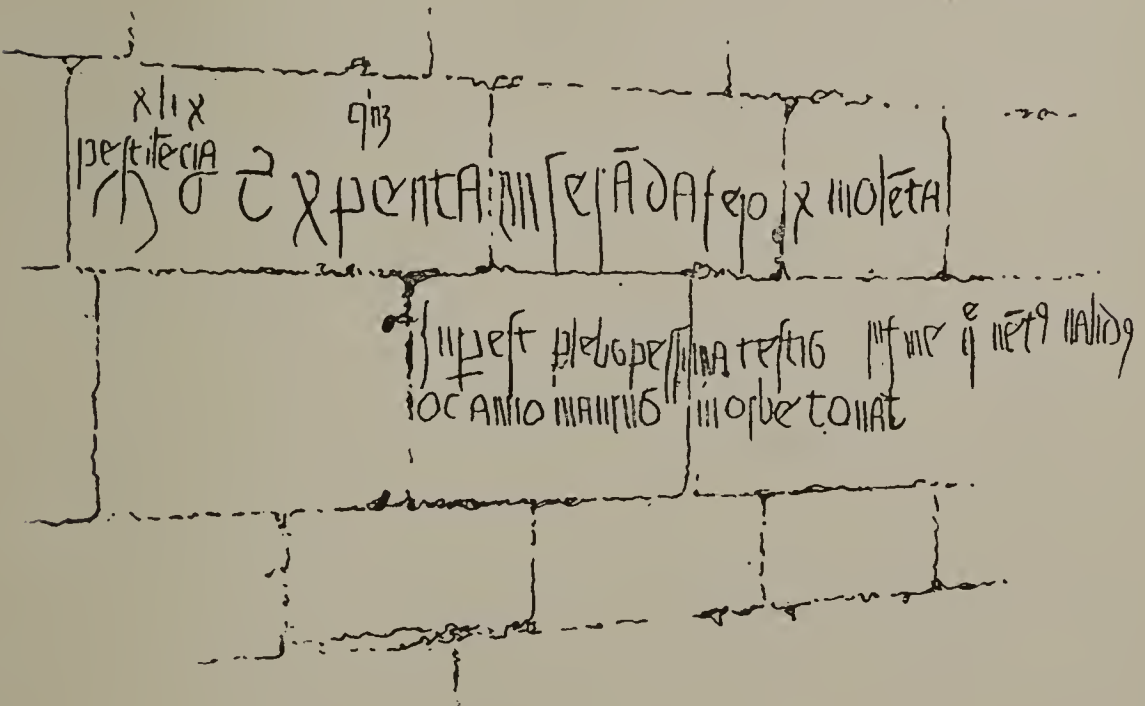 xlix qinʒ
pestilēcia
M c̄ T x penta miserāda ferox violēta
supest plebs pessima testis in fine qe vēt⁹ valid⁹
oc anno maurus in orbe tonat